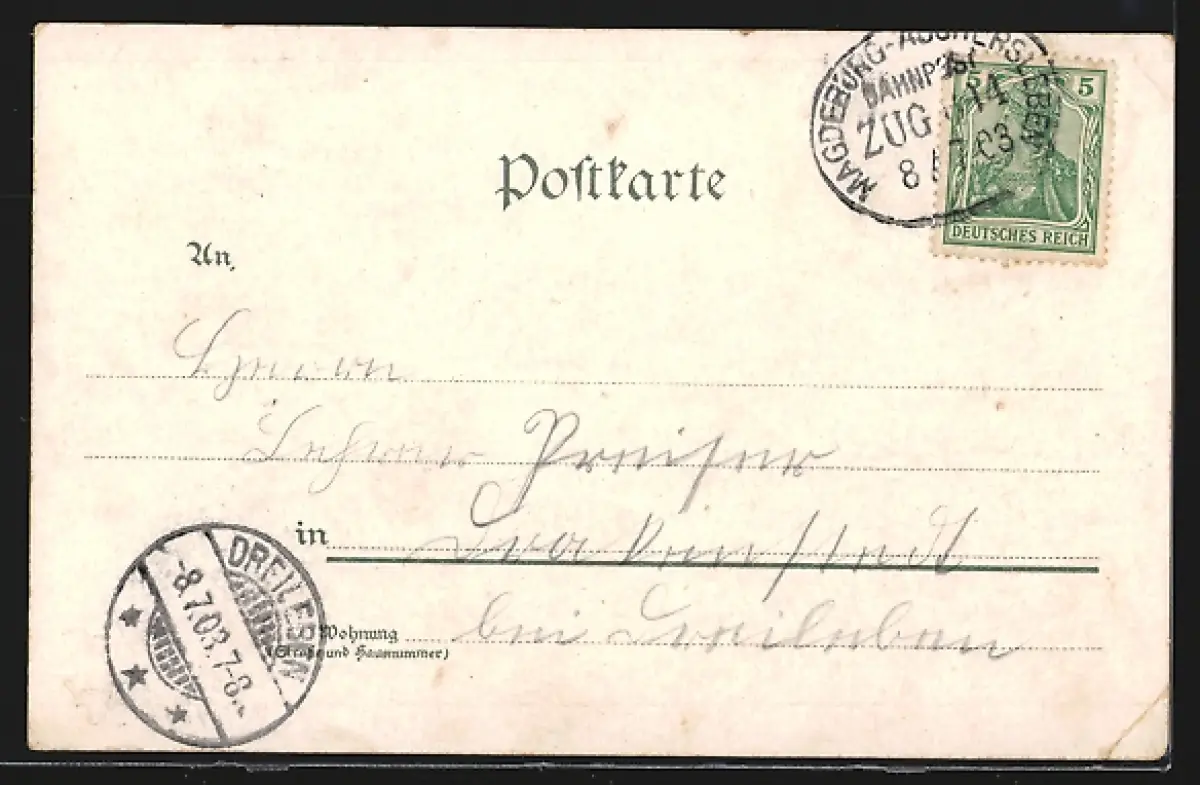 MAGDEBURG-ASCHERSLEBEN
BAHNPOST
ZUG 14
8 7 03
5 5
DEUTSCHES REICH
Postkarte
An
Herrn
Lehrer Preiser
in Drakenstedt
Wohnung bei Dreileben
(Straße und Hausnummer)
DREILEB
-8.7.03.7-8